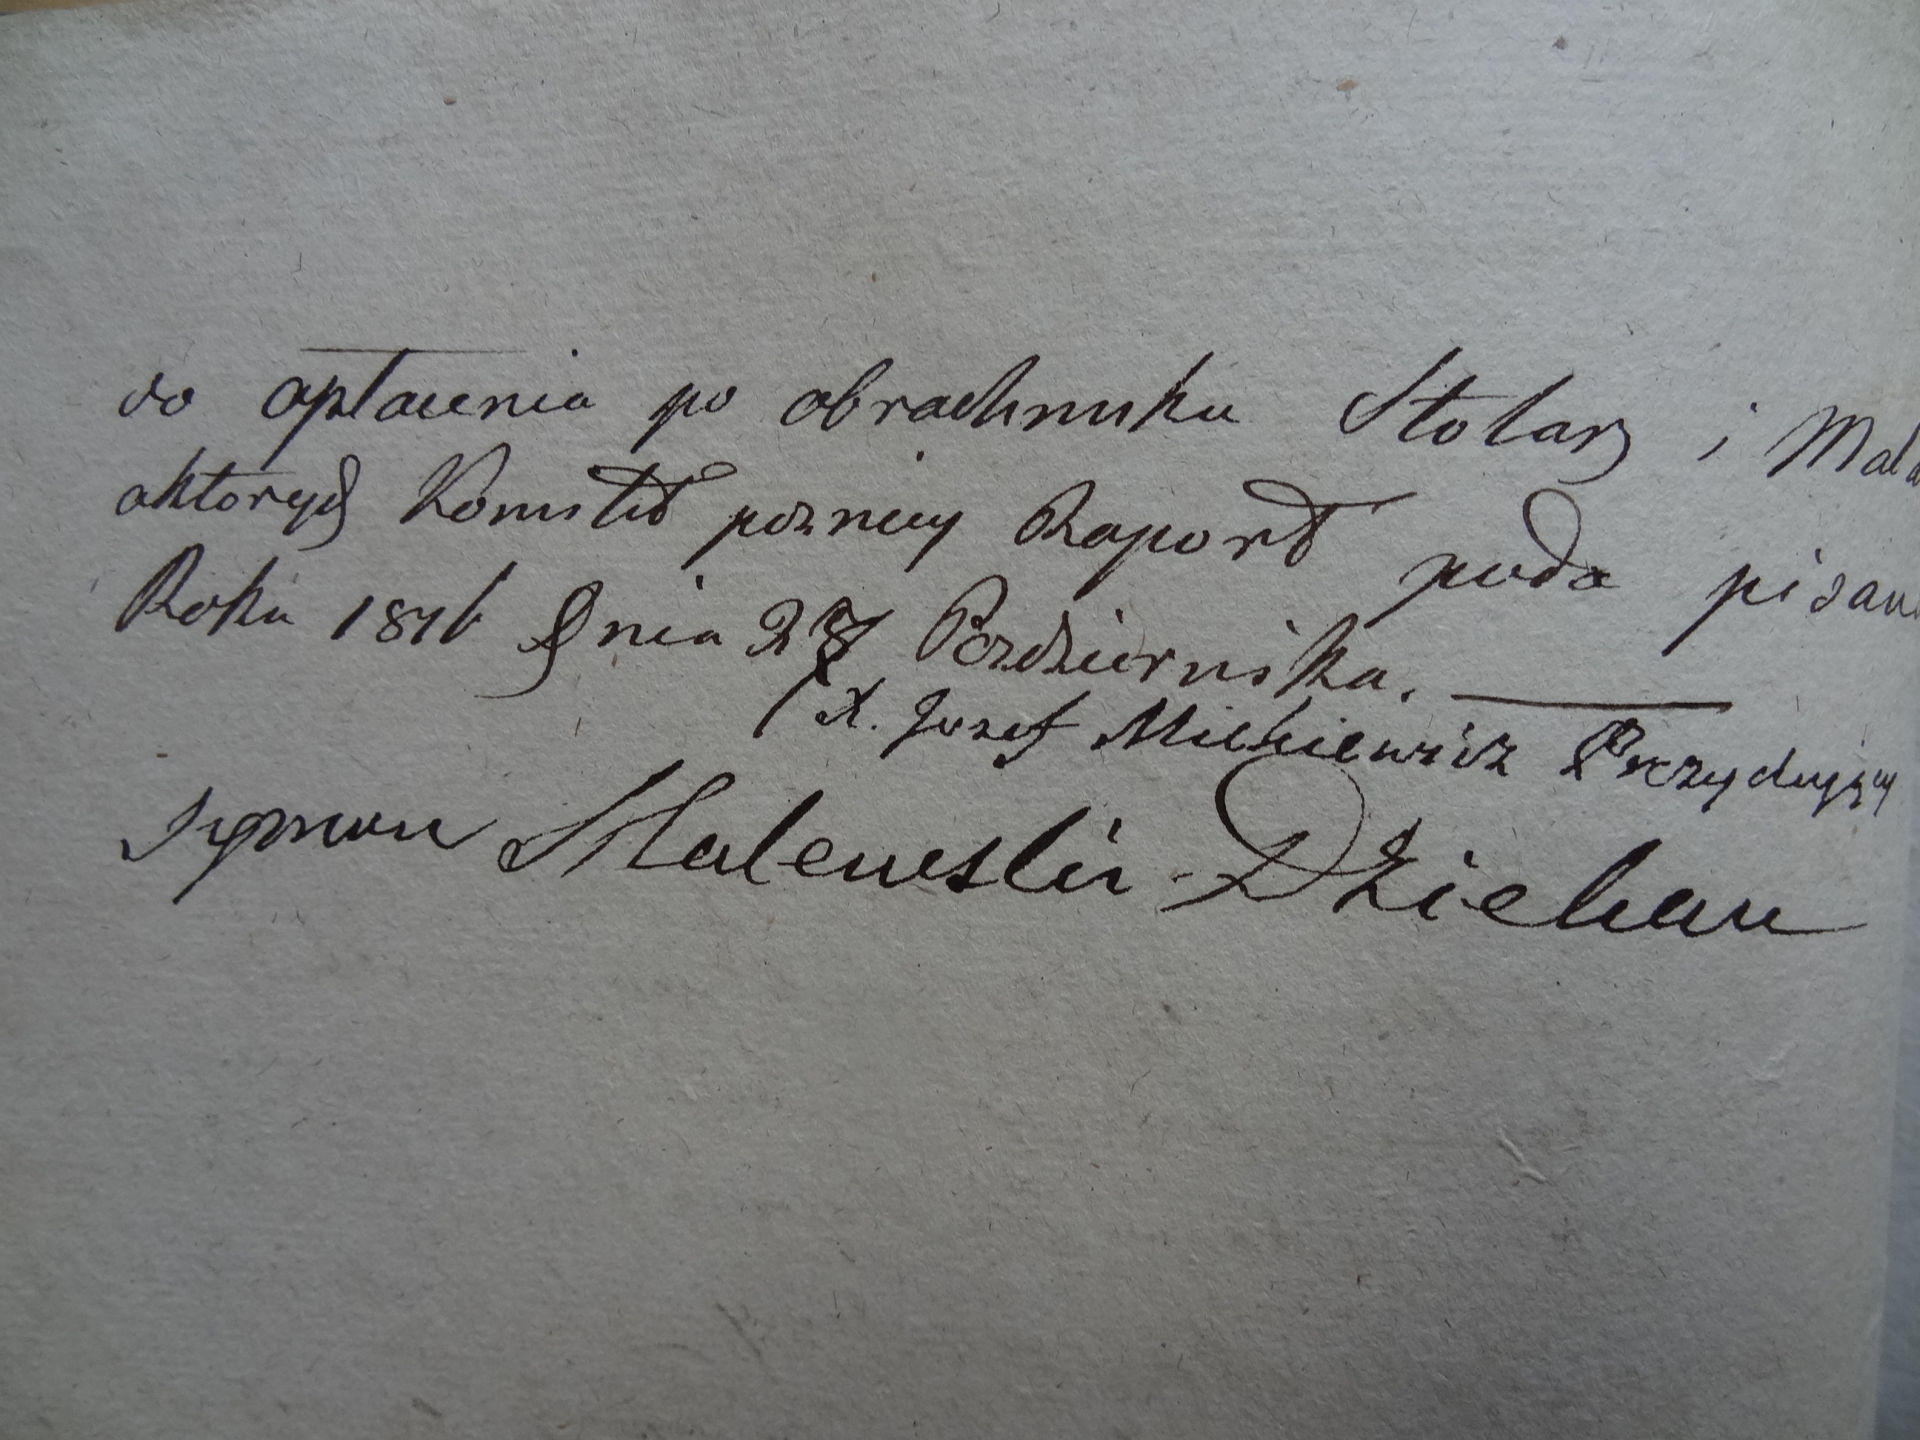 do opłacenia po obrachunku Stolarz i Mala
o ktorych Komitet pozniey Raport poda pisano
Roku 1816 Dnia 27 Pazdziernika.
X. Jozef Mickiewicz Prezydujący
Szymon Malewski Dziekan